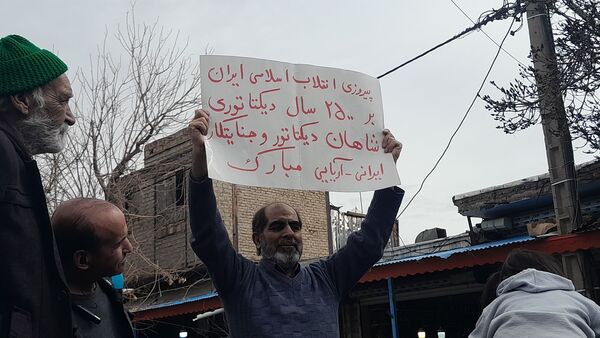 پیروزی انقلاب اسلامی ایران
بر ۲۵۰۰ سال دیکتاتوری
شاهان دیکتاتور و جنایتکار
ایرانی - آریایی مبارک